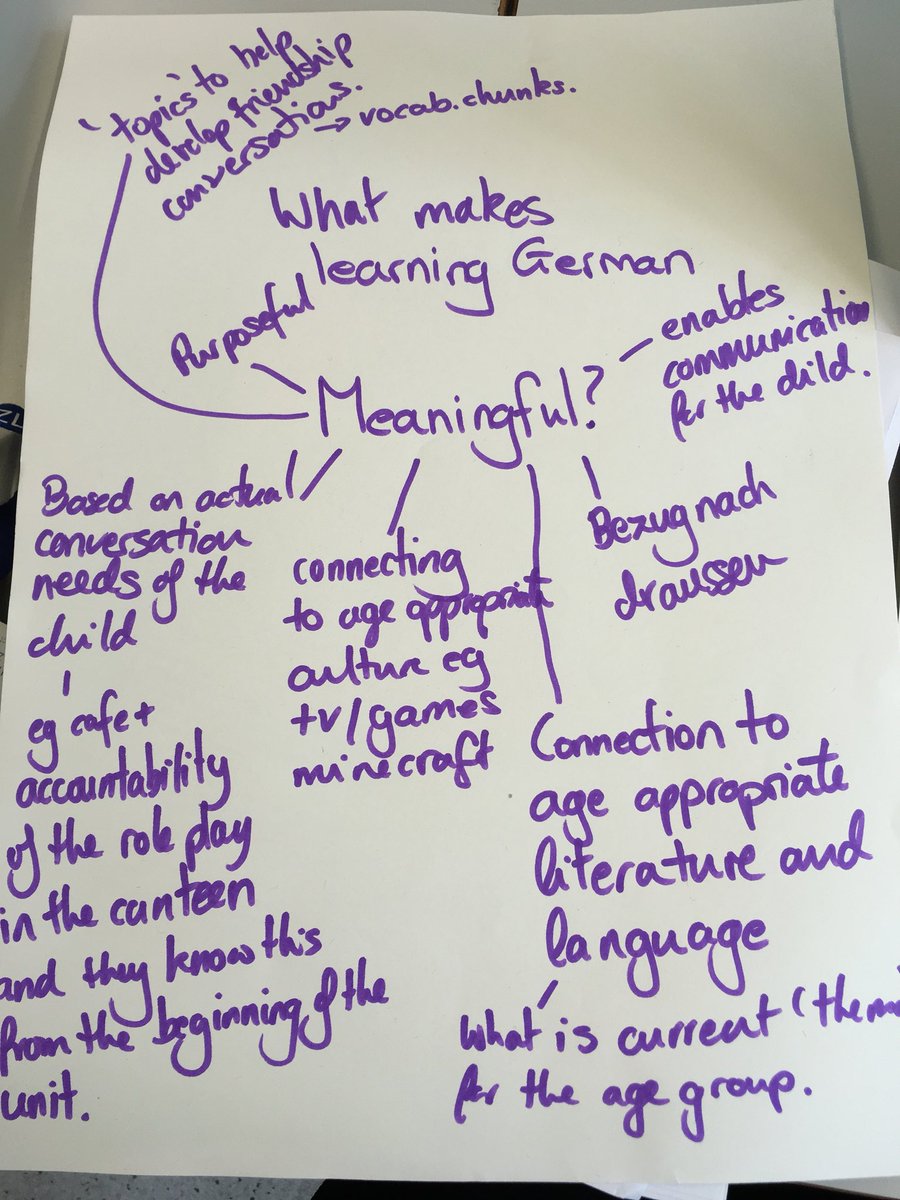 'topics' to help
develop friendship
conversations.
→ vocab.chunks.
What makes
learning German
Meaningful?
Purposeful
enables
communication
for the child.
Based on actual
conversation
needs of the
child
eg cafe +
accountability
of the role play
in the canteen
and they know this
from the beginning of the
unit.
connecting
to age appropriate
culture eg
tv/games
minecraft
Bezug nach
draussen
Connection to
age appropriate
literature and
language
What is current (
for the age group.